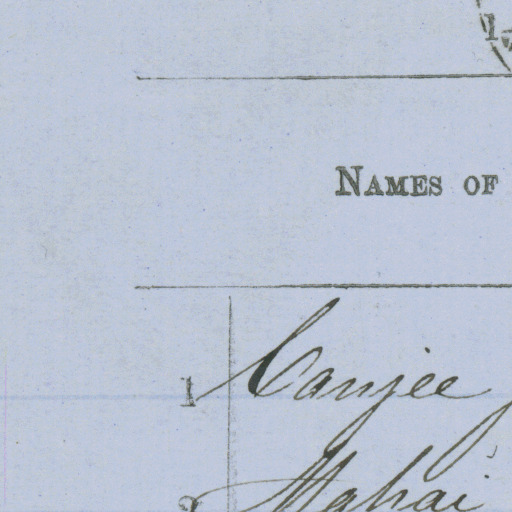 NAMES OF
1 Canjee
2 Mahai